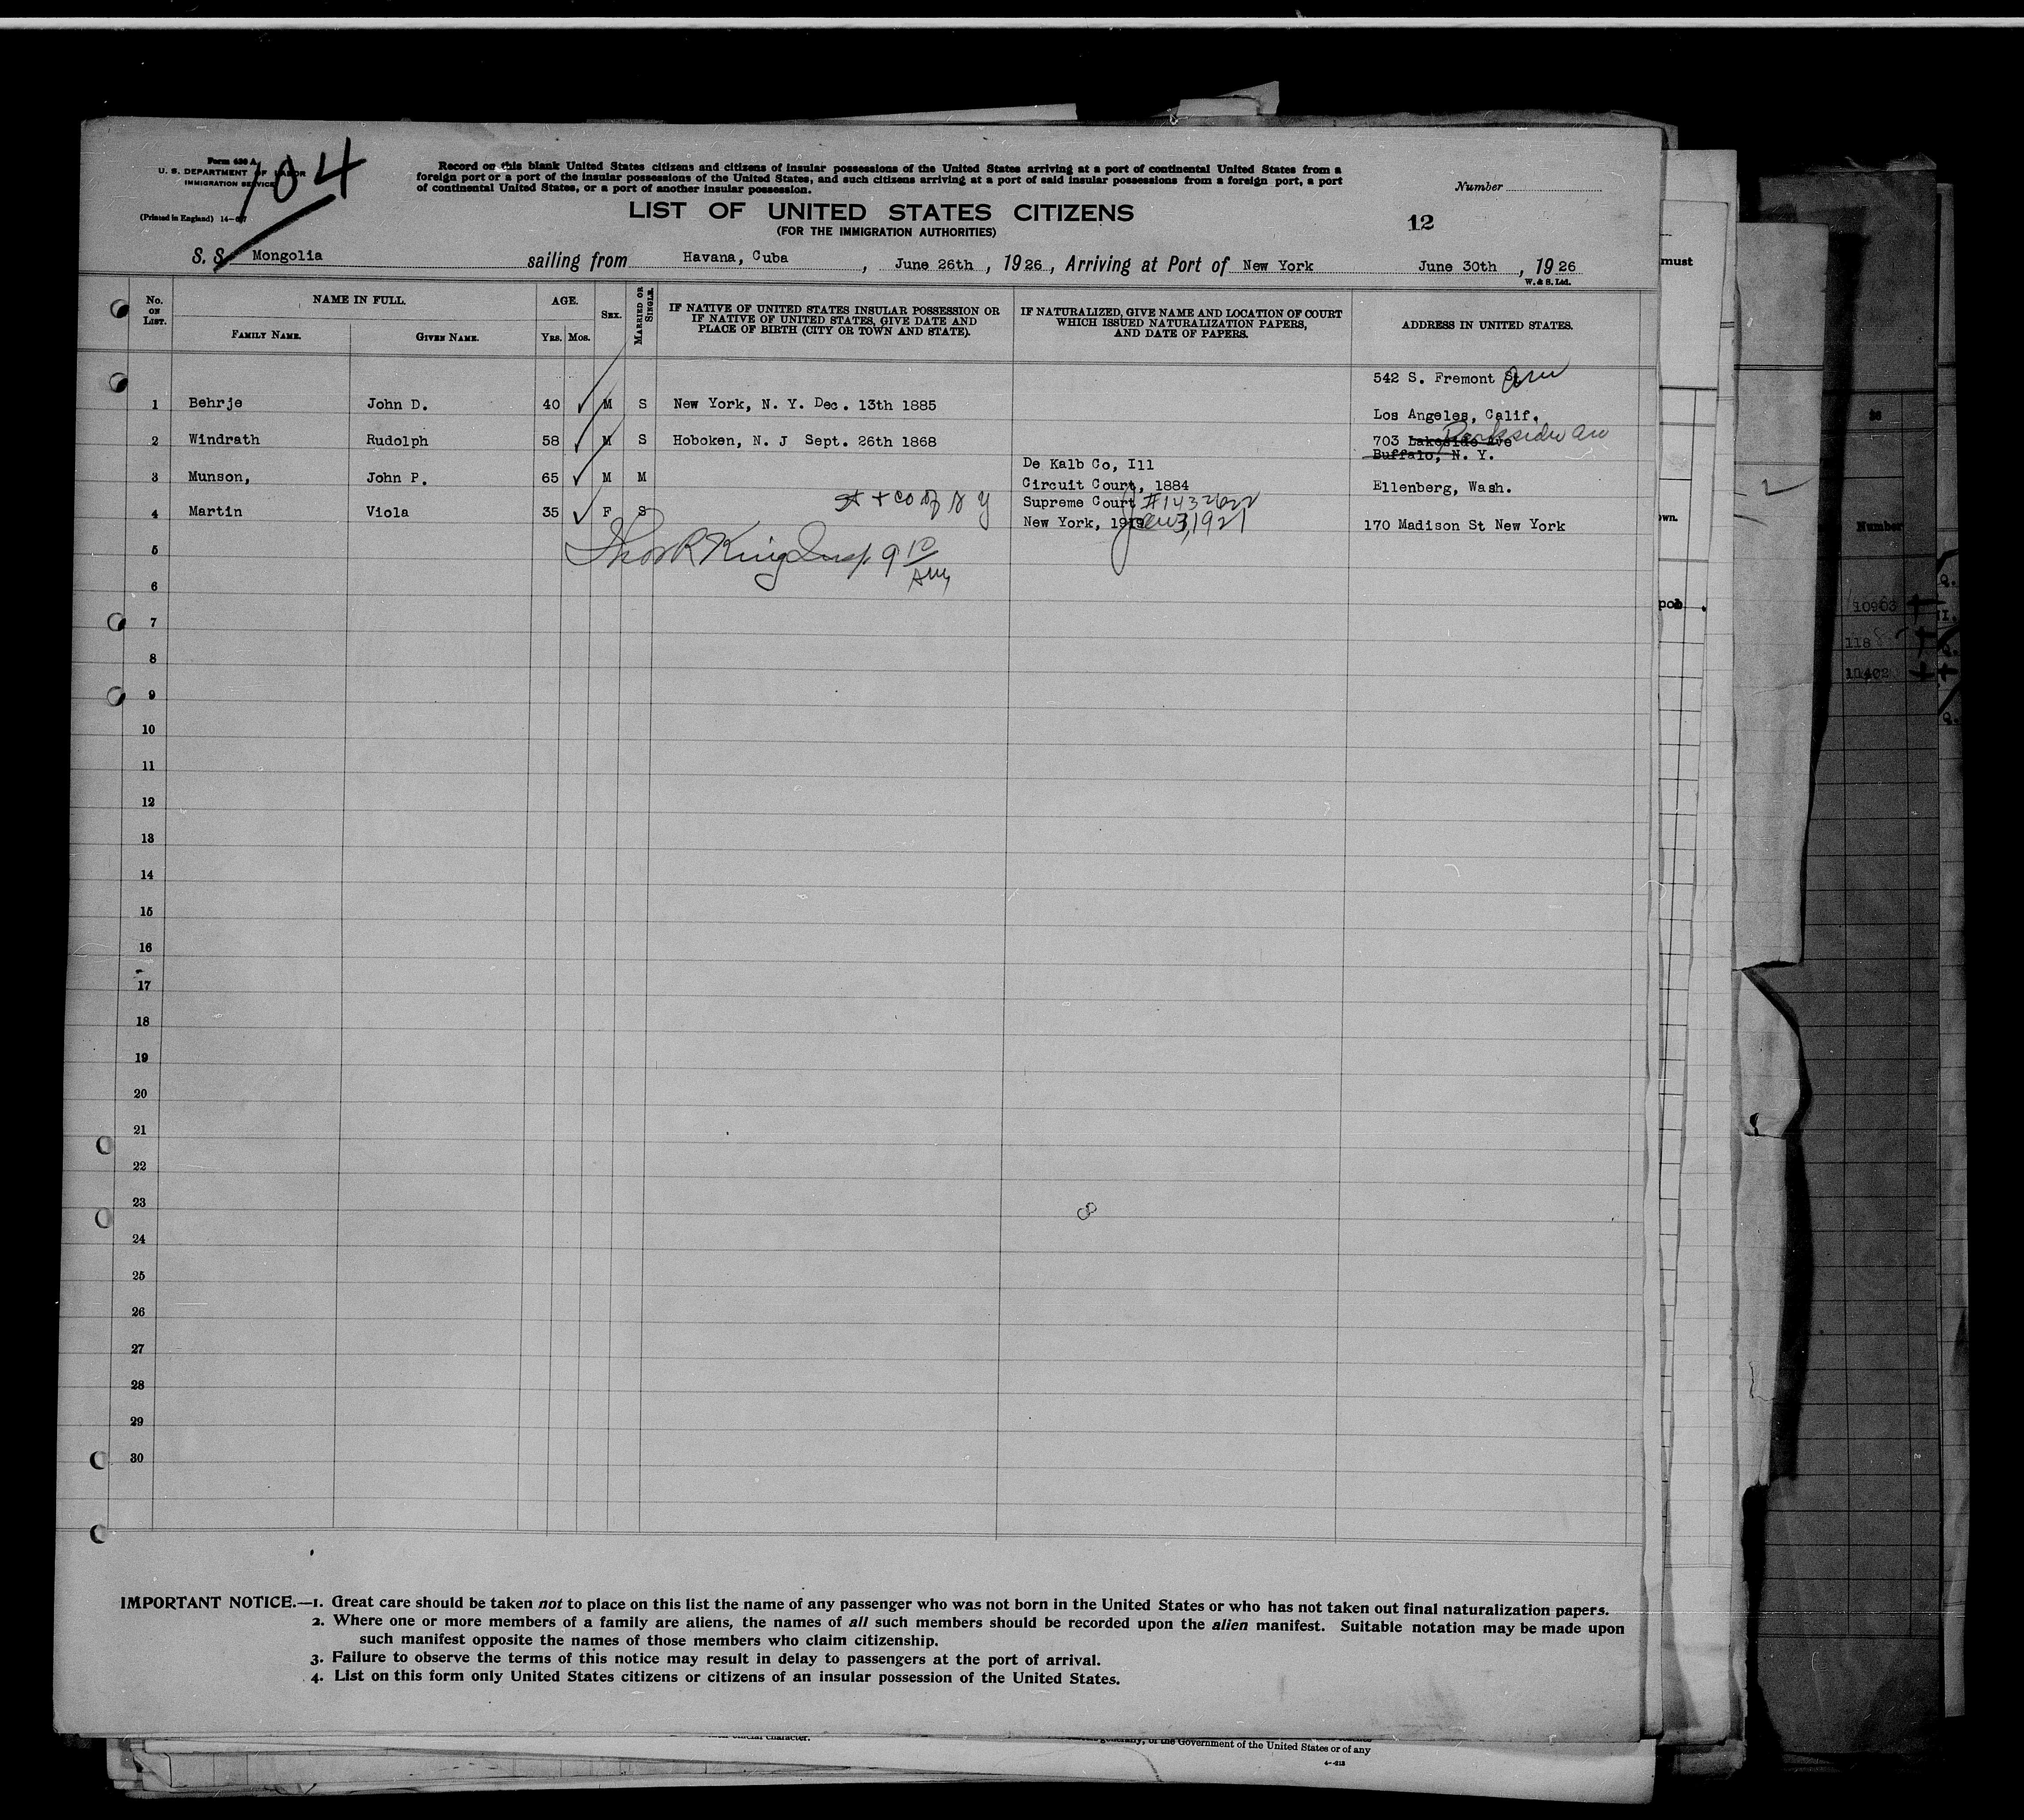 Form 630 A
U. S. DEPARTMENT OF LABOR
IMMIGRATION SERVICE
(Printed in England) 14-
104
Record on this blank United States citizens and citizens of insular possessions of the United States arriving at a port of continental United States from a
foreign port or a port of the insular possessions of the United States, and such citizens arriving at a port of said insular possessions from a foreign port, a port
of continental United States, or a port of another insular possession.
Number
LIST OF UNITED STATES CITIZENS
(FOR THE IMMIGRATION AUTHORITIES)
12
S. S. Mongolia sailing from Havana, Cuba, June 26th, 1926, Arriving at Port of New York June 30th, 1926
W. & S. Ltd.
No. ON LIST.
NAME IN FULL.
FAMILY NAME.
GIVEN NAME.
AGE.
YRS. MOS.
SEX.
MARRIED OR SINGLE.
IF NATIVE OF UNITED STATES INSULAR POSSESSION OR
IF NATIVE OF UNITED STATES, GIVE DATE AND
PLACE OF BIRTH (CITY OR TOWN AND STATE).
IF NATURALIZED, GIVE NAME AND LOCATION OF COURT
WHICH ISSUED NATURALIZATION PAPERS,
AND DATE OF PAPERS.
ADDRESS IN UNITED STATES.
542 S. Fremont St Ave
1 Behrje John D. 40 M S New York, N. Y. Dec. 13th 1885
Los Angeles, Calif.
2 Windrath Rudolph 58 M S Hoboken, N. J Sept. 26th 1868 703 Lakeside Ave Parkside Av
Buffalo, N. Y.
De Kalb Co, Ill
3 Munson, John P. 65 M M Circuit Court, 1884 Ellenberg, Wash.
St + Co of N Y Supreme Court #1432622
4 Martin Viola 35 F S New York, 1919 Jan 3, 1921 170 Madison St New York
Thos R King Insp 9 10 Am
5
6
7
8
9
10
11
12
13
14
15
16
17
18
19
20
21
22
23
24
25
26
27
28
29
30
IMPORTANT NOTICE.—1. Great care should be taken not to place on this list the name of any passenger who was not born in the United States or who has not taken out final naturalization papers.
2. Where one or more members of a family are aliens, the names of all such members should be recorded upon the alien manifest. Suitable notation may be made upon
such manifest opposite the names of those members who claim citizenship.
3. Failure to observe the terms of this notice may result in delay to passengers at the port of arrival.
4. List on this form only United States citizens or citizens of an insular possession of the United States.
must
own.
Number
10903
118
11402
official character.
of the Government of the United States or of any